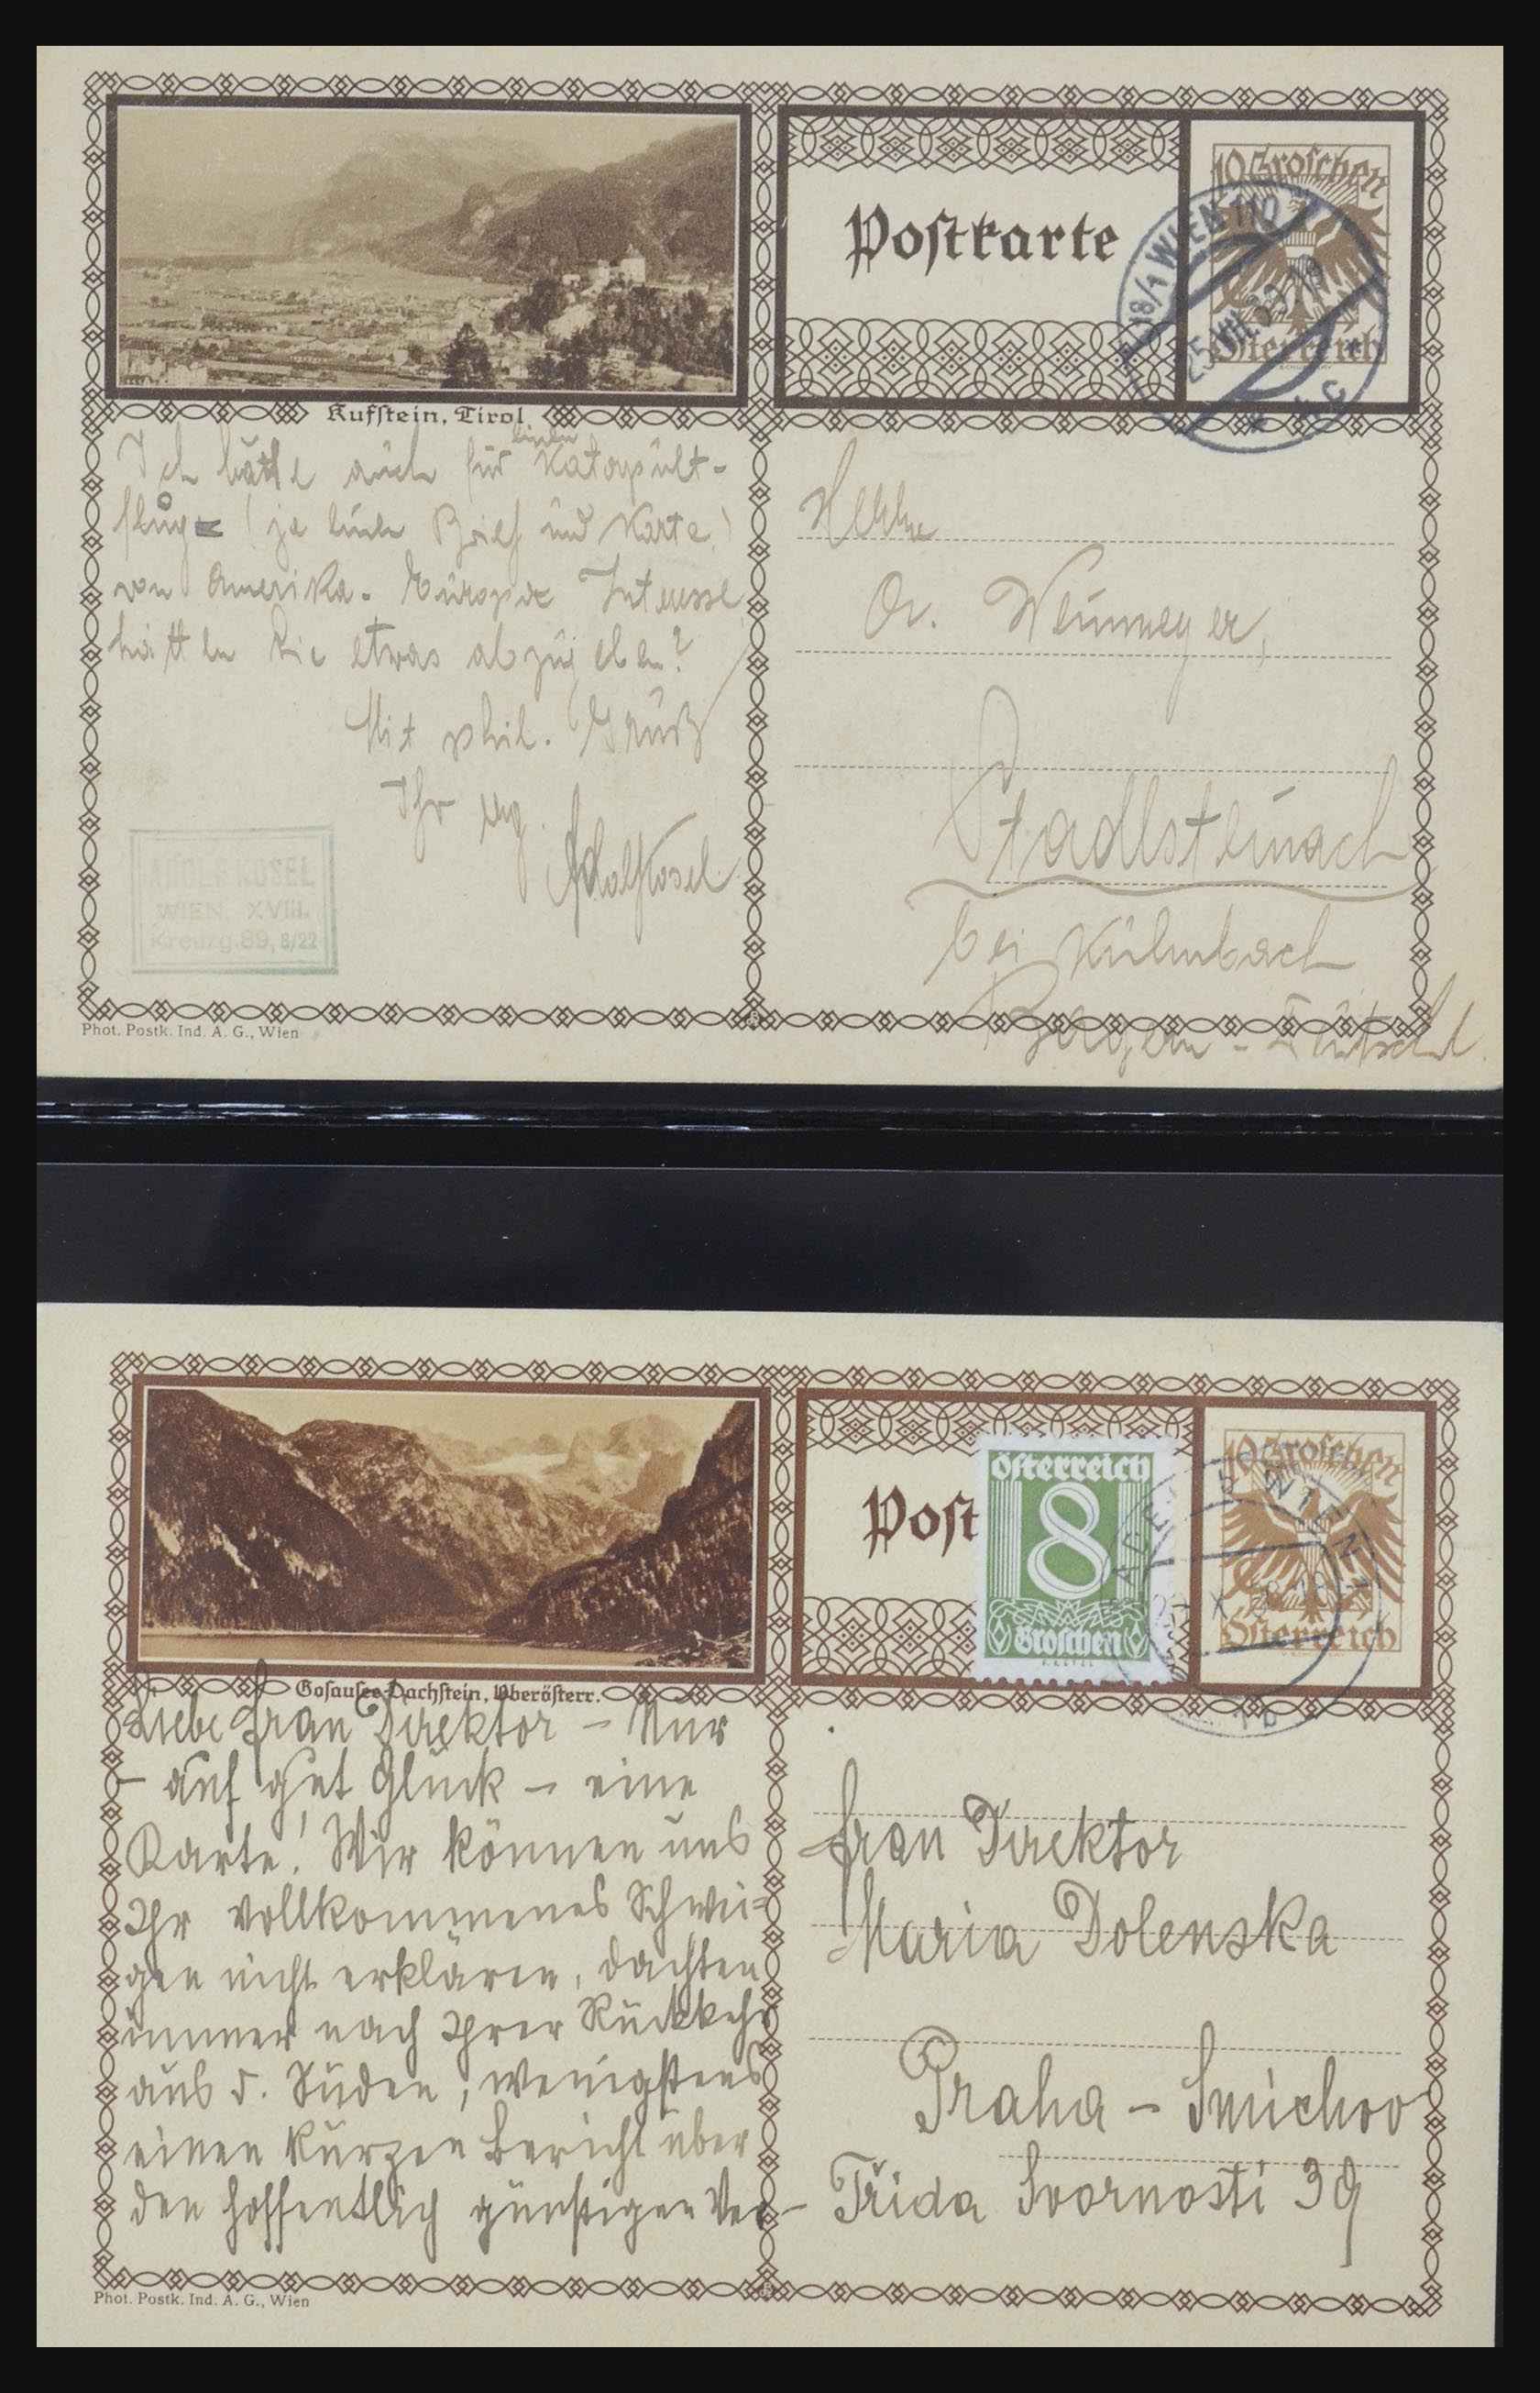 10 Groschen
Österreich
Postkarte
18/1 WIEN 110
25.VIII.29
Kufstein, Tirol
Ich hätte auch für einen Katapult-
flug (je einen Brief und Karte)
von Amerika - Europa Interesse
hätten Sie etwas abzugeben?
Mit phil. Gruß
Ihr erg.
Adolf Kosel
ADOLF KOSEL
WIEN, XVIII.
Kreuzg. 69, 8/22
Phot. Postk. Ind. A. G., Wien
Herrn
Dr. Neumeyer,
Stadtsteinach
bei Kulmbach
Bayern - Deutschl.
10 Groschen
Österreich
Post
Österreich
8
Groschen
Gosausee-Dachstein, Oberösterr.
Liebe Frau Direktor – Nur
– auf gut Glück – eine
Karte! Wir können uns
Ihr vollkommenes Schwei=
gen nicht erklären, dachten
immer nach Ihrer Rückkehr
aus d. Süden, wenigstens
einen kurzen Bericht über
den hoffentlich günstigen Ver-
Frau Direktor
Maria Dolenska
Praha – Smichov
Třida Svornosti 39
Phot. Postk. Ind. A. G., Wien